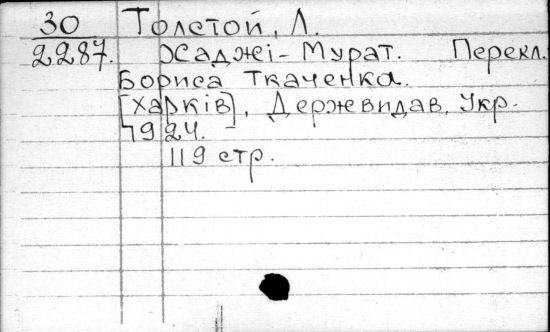 30 Толстой, Л.
2287. Хаджі-Мурат. Перекл.
Бориса Ткаченка.
[Харків], Держвидав. Укр.
1924. -
119 стр.